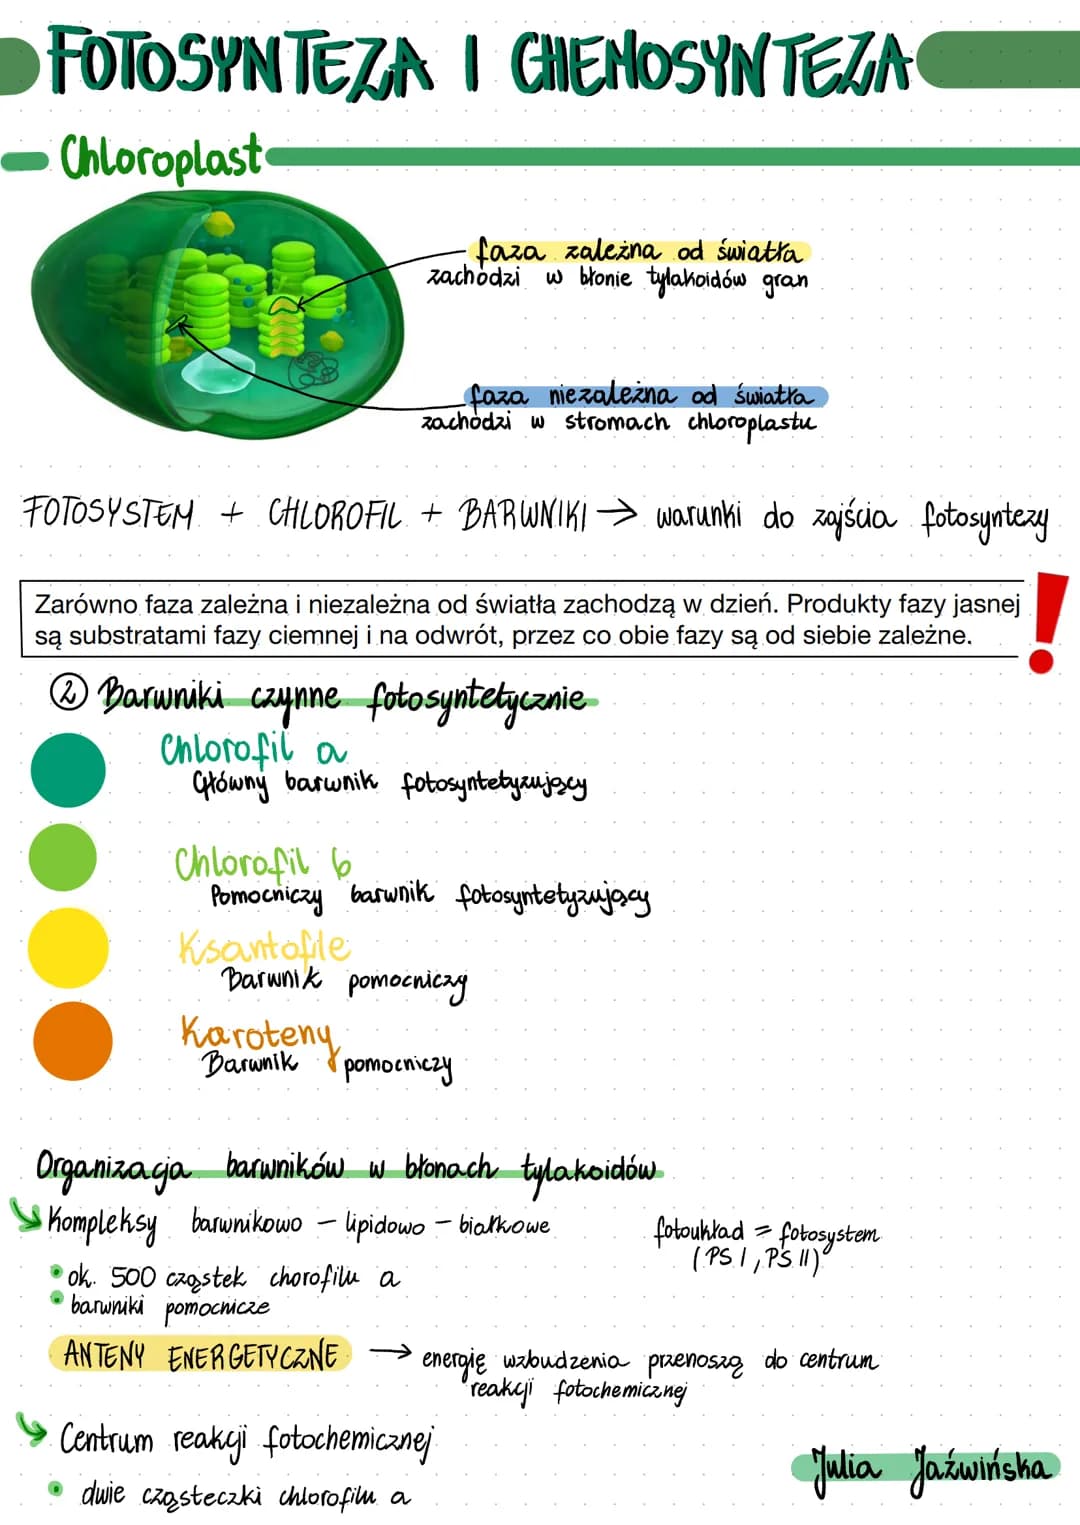 FOTOSYNTEZA I CHEMOSYNTEZA
Chloroplast
faza zależna od światła
zachodzi w błonie tylakoidów gran
faza niezależna od światła
zachodzi w stromach chloroplastu
FOTOSYSTEM + CHLOROFIL + BARWNIKI → warunki do zajścia fotosyntezy
Zarówno faza zależna i niezależna od światła zachodzą w dzień. Produkty fazy jasnej
są substratami fazy ciemnej i na odwrót, przez co obie fazy są od siebie zależne.
!
② Barwniki czynne fotosyntetycznie
Chlorofil a
Główny barwnik fotosyntetyzujący
Chlorofil b
Pomocniczy barwnik fotosyntetyzujący
Ksantofile
Barwnik pomocniczy
Karoteny
Barwnik pomocniczy
Organizacja barwników w błonach tylakoidów
Kompleksy barwnikowo - lipidowo - białkowe
fotoukład = fotosystem
(PS I, PS II)
• ok. 500 cząstek chorofilu a
• barwniki pomocnicze
ANTENY ENERGETYCZNE → energię wzbudzenia przenoszą do centrum
reakcji fotochemicznej
Centrum reakcji fotochemicznej
• dwie cząsteczki chlorofilu a
Julia Jaźwińska